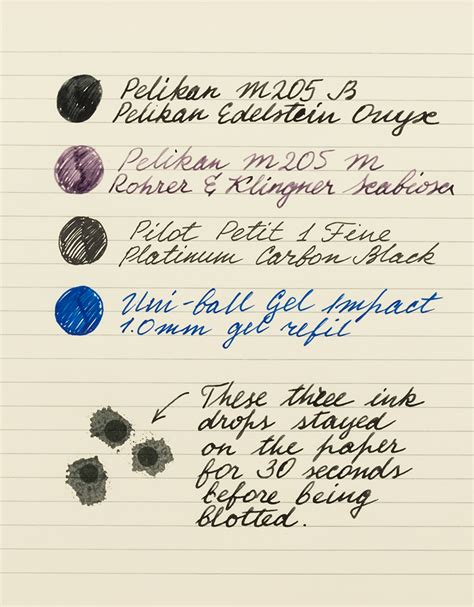 Pelikan M205 B
Pelikan Edelstein Onyx
Pelikan M205 M
Rohrer & Klingner Scabiosa
Pilot Petit 1 Fine
Platinum Carbon Black
Uni-ball Gel Impact
1.0mm gel refil
These three ink
drops stayed
on the paper
for 30 seconds
before being
blotted.